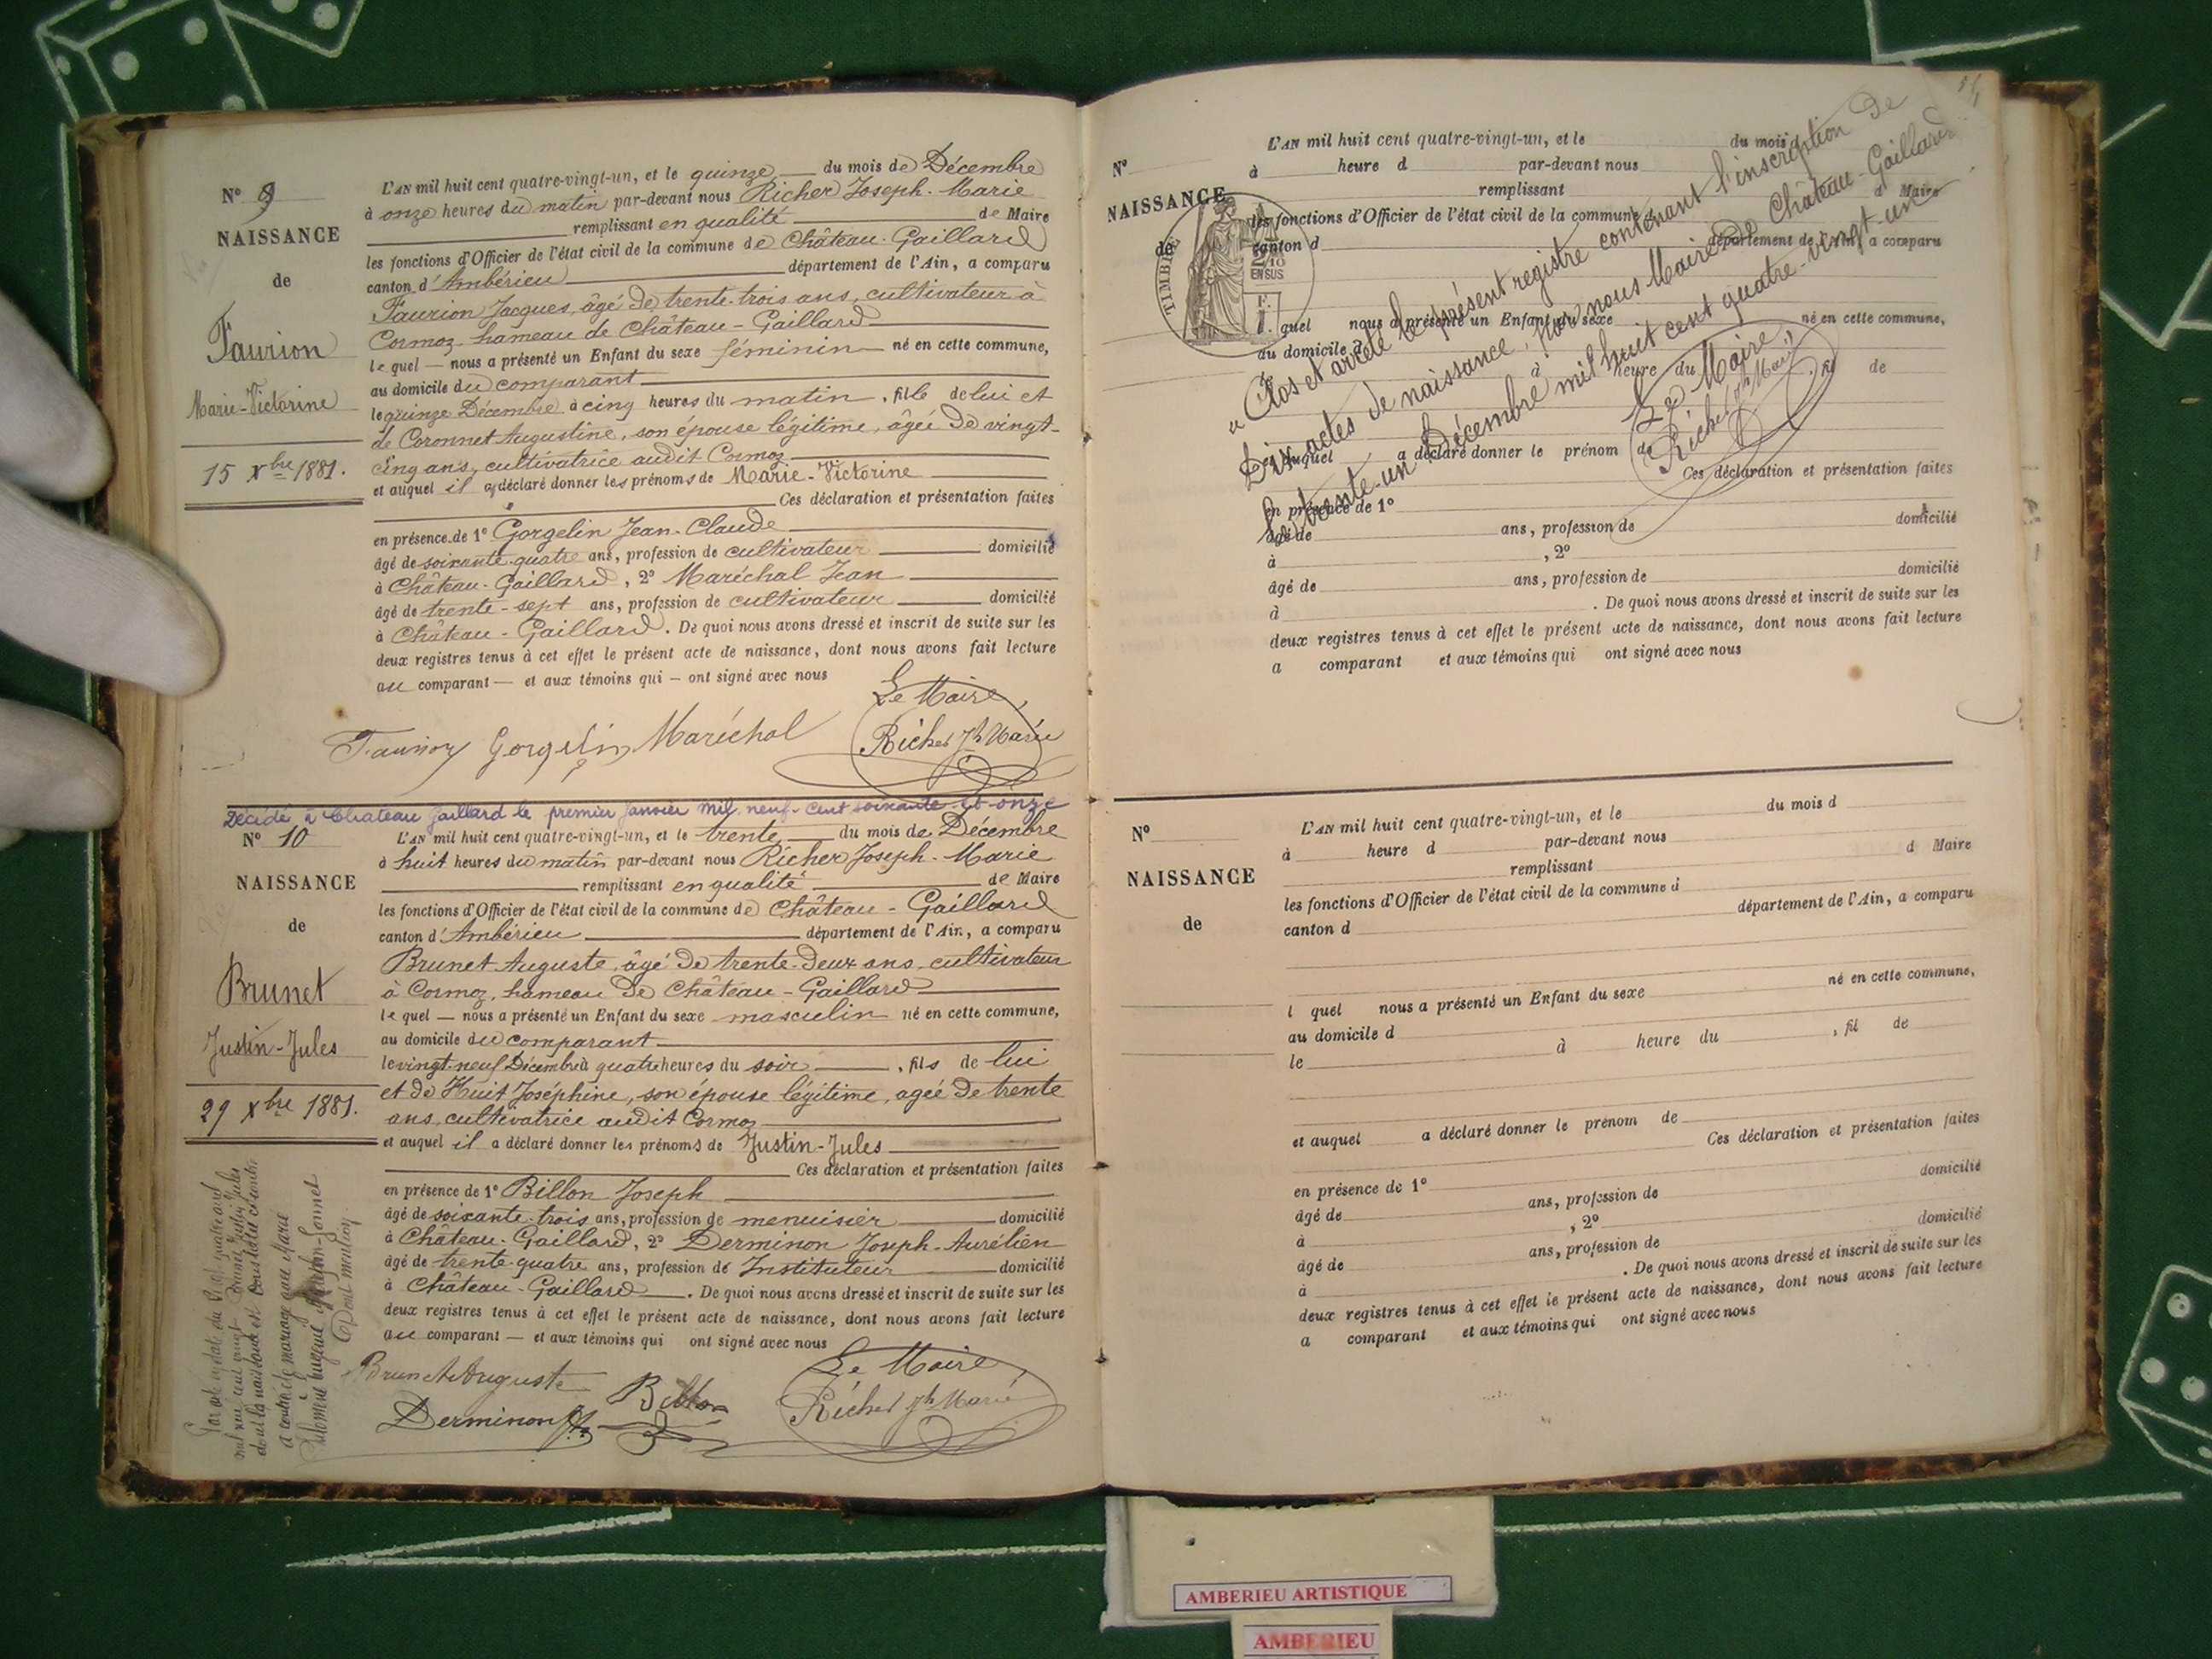 N° 9
NAISSANCE
de
Faurion
Marie-Victorine
15 Xbre 1881.
L'AN mil huit cent quatre-vingt-un, et le quinze du mois de Décembre
à onze heures du matin par-devant nous Richer Joseph-Marie
remplissant en qualité de Maire
les fonctions d'Officier de l'état civil de la commune de Château-Gaillard
canton d'Ambérieu département de l'Ain, a comparu
Faurion Jacques, âgé de trente-trois ans, cultivateur à
Cormoz hameau de Château-Gaillard
le quel — nous a présenté un Enfant du sexe féminin né en cette commune,
au domicile du comparant
le quinze Décembre à cinq heures du matin, fille de lui et
de Coronnet Augustine, son épouse légitime, âgée de vingt-
cinq ans, cultivatrice audit Cormoz
et auquel il a déclaré donner les prénoms de Marie-Victorine
Ces déclaration et présentation faites
en présence de 1° Gorgelin Jean-Claude
âgé de soixante-quatre ans, profession de cultivateur domicilié
à Château-Gaillard, 2° Maréchal Jean
âgé de trente-sept ans, profession de cultivateur domicilié
à Château-Gaillard. De quoi nous avons dressé et inscrit de suite sur les
deux registres tenus à cet effet le présent acte de naissance, dont nous avons fait lecture
au comparant — et aux témoins qui — ont signé avec nous
Le Maire,
Faurion Gorgelin Maréchal Richer Jh Marie
Décédé à Chateau Gaillard le premier Janvier mil neuf-cent soixante-et-onze
N° 10
NAISSANCE
de
Brunet
Justin-Jules
29 Xbre 1881.
L'AN mil huit cent quatre-vingt-un, et le trente du mois de Décembre
à huit heures du matin par-devant nous Richer Joseph-Marie
remplissant en qualité de Maire
les fonctions d'Officier de l'état civil de la commune de Château-Gaillard
canton d'Ambérieu département de l'Ain, a comparu
Brunet Auguste, âgé de trente-deux ans, cultivateur
à Cormoz, hameau de Château-Gaillard
le quel — nous a présenté un Enfant du sexe masculin né en cette commune,
au domicile du comparant
le vingt-neuf Décembre à quatre heures du soir, fils de lui
et de Huit Joséphine, son épouse légitime, agée de trente
ans, cultivatrice audit Cormoz
et auquel il a déclaré donner les prénoms de Justin-Jules
Ces déclaration et présentation faites
en présence de 1° Billon Joseph
âgé de soixante-trois ans, profession de menuisier domicilié
à Château-Gaillard, 2° Derminon Joseph-Aurélien
âgé de trente-quatre ans, profession de Instituteur domicilié
à Château-Gaillard. De quoi nous avons dressé et inscrit de suite sur les
deux registres tenus à cet effet le présent acte de naissance, dont nous avons fait lecture
au comparant — et aux témoins qui ont signé avec nous
Brunet Auguste Billon Le Maire
Derminon Richer Jh Marie
dont la naissance est constatée ci-contre
a contracté mariage avec Marie
Pour mention
N°
NAISSANCE
de
TIMBRE
2/10
EN SUS
L'AN mil huit cent quatre-vingt-un, et le du mois
à heure d par-devant nous
remplissant d Maire
les fonctions d'Officier de l'état civil de la commune d
canton d département de l'Ain, a comparu
l quel nous a présenté un Enfant du sexe né en cette commune,
au domicile d
le à heure du , fil de
et auquel a déclaré donner le prénom de
Ces déclaration et présentation faites
en présence de 1°
âgé de ans, profession de domicilié
à , 2°
âgé de ans, profession de domicilié
à . De quoi nous avons dressé et inscrit de suite sur les
deux registres tenus à cet effet le présent acte de naissance, dont nous avons fait lecture
a comparant et aux témoins qui ont signé avec nous
"Clos et arrêté le présent registre contenant l'inscription de
Dix actes de naissance, par nous Maire de Château-Gaillard
le trente-un Décembre mil huit cent quatre-vingt-un
Le Maire,
Richer Jh Marie
N°
NAISSANCE
de
L'AN mil huit cent quatre-vingt-un, et le du mois d
à heure d par-devant nous
remplissant d Maire
les fonctions d'Officier de l'état civil de la commune d
canton d département de l'Ain, a comparu
l quel nous a présenté un Enfant du sexe né en cette commune,
au domicile d
le à heure du , fil de
et auquel a déclaré donner le prénom de
Ces déclaration et présentation faites
en présence de 1°
âgé de ans, profession de domicilié
à , 2°
âgé de ans, profession de domicilié
à . De quoi nous avons dressé et inscrit de suite sur les
deux registres tenus à cet effet le présent acte de naissance, dont nous avons fait lecture
a comparant et aux témoins qui ont signé avec nous
AMBERIEU ARTISTIQUE
AMBERIEU